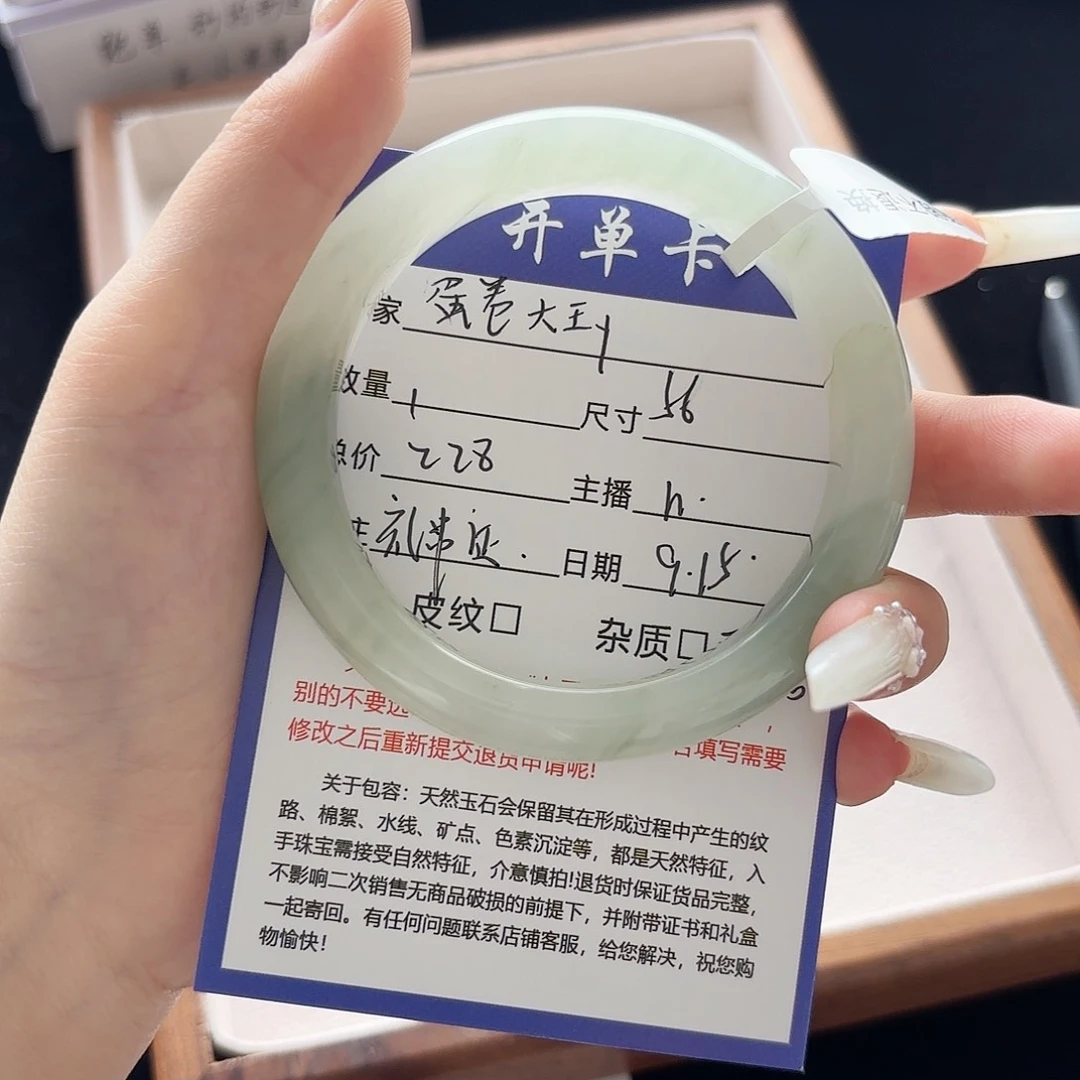 开单卡
家 蛋卷大王y
数量 1 尺寸 56
总价 228 主播 h.
日期 9.15.
皮纹□ 杂质□
别的不要选
修改之后重新提交退货申请呢!
填写需要
关于包容：天然玉石会保留其在形成过程中产生的纹
路、棉絮、水线、矿点、色素沉淀等，都是天然特征，入
手珠宝需接受自然特征，介意慎拍!退货时保证货品完整，
不影响二次销售无商品破损的前提下，并附带证书和礼盒
一起寄回。有任何问题联系店铺客服，给您解决，祝您购
物愉快！
不退换